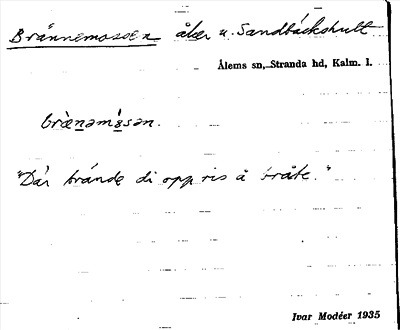 Brännemossen åker u. Sandbäckshult
Ålems sn, Stranda hd, Kalm. l.
"Där brände di opp ris å bråte."
Ivar Modéer 1935